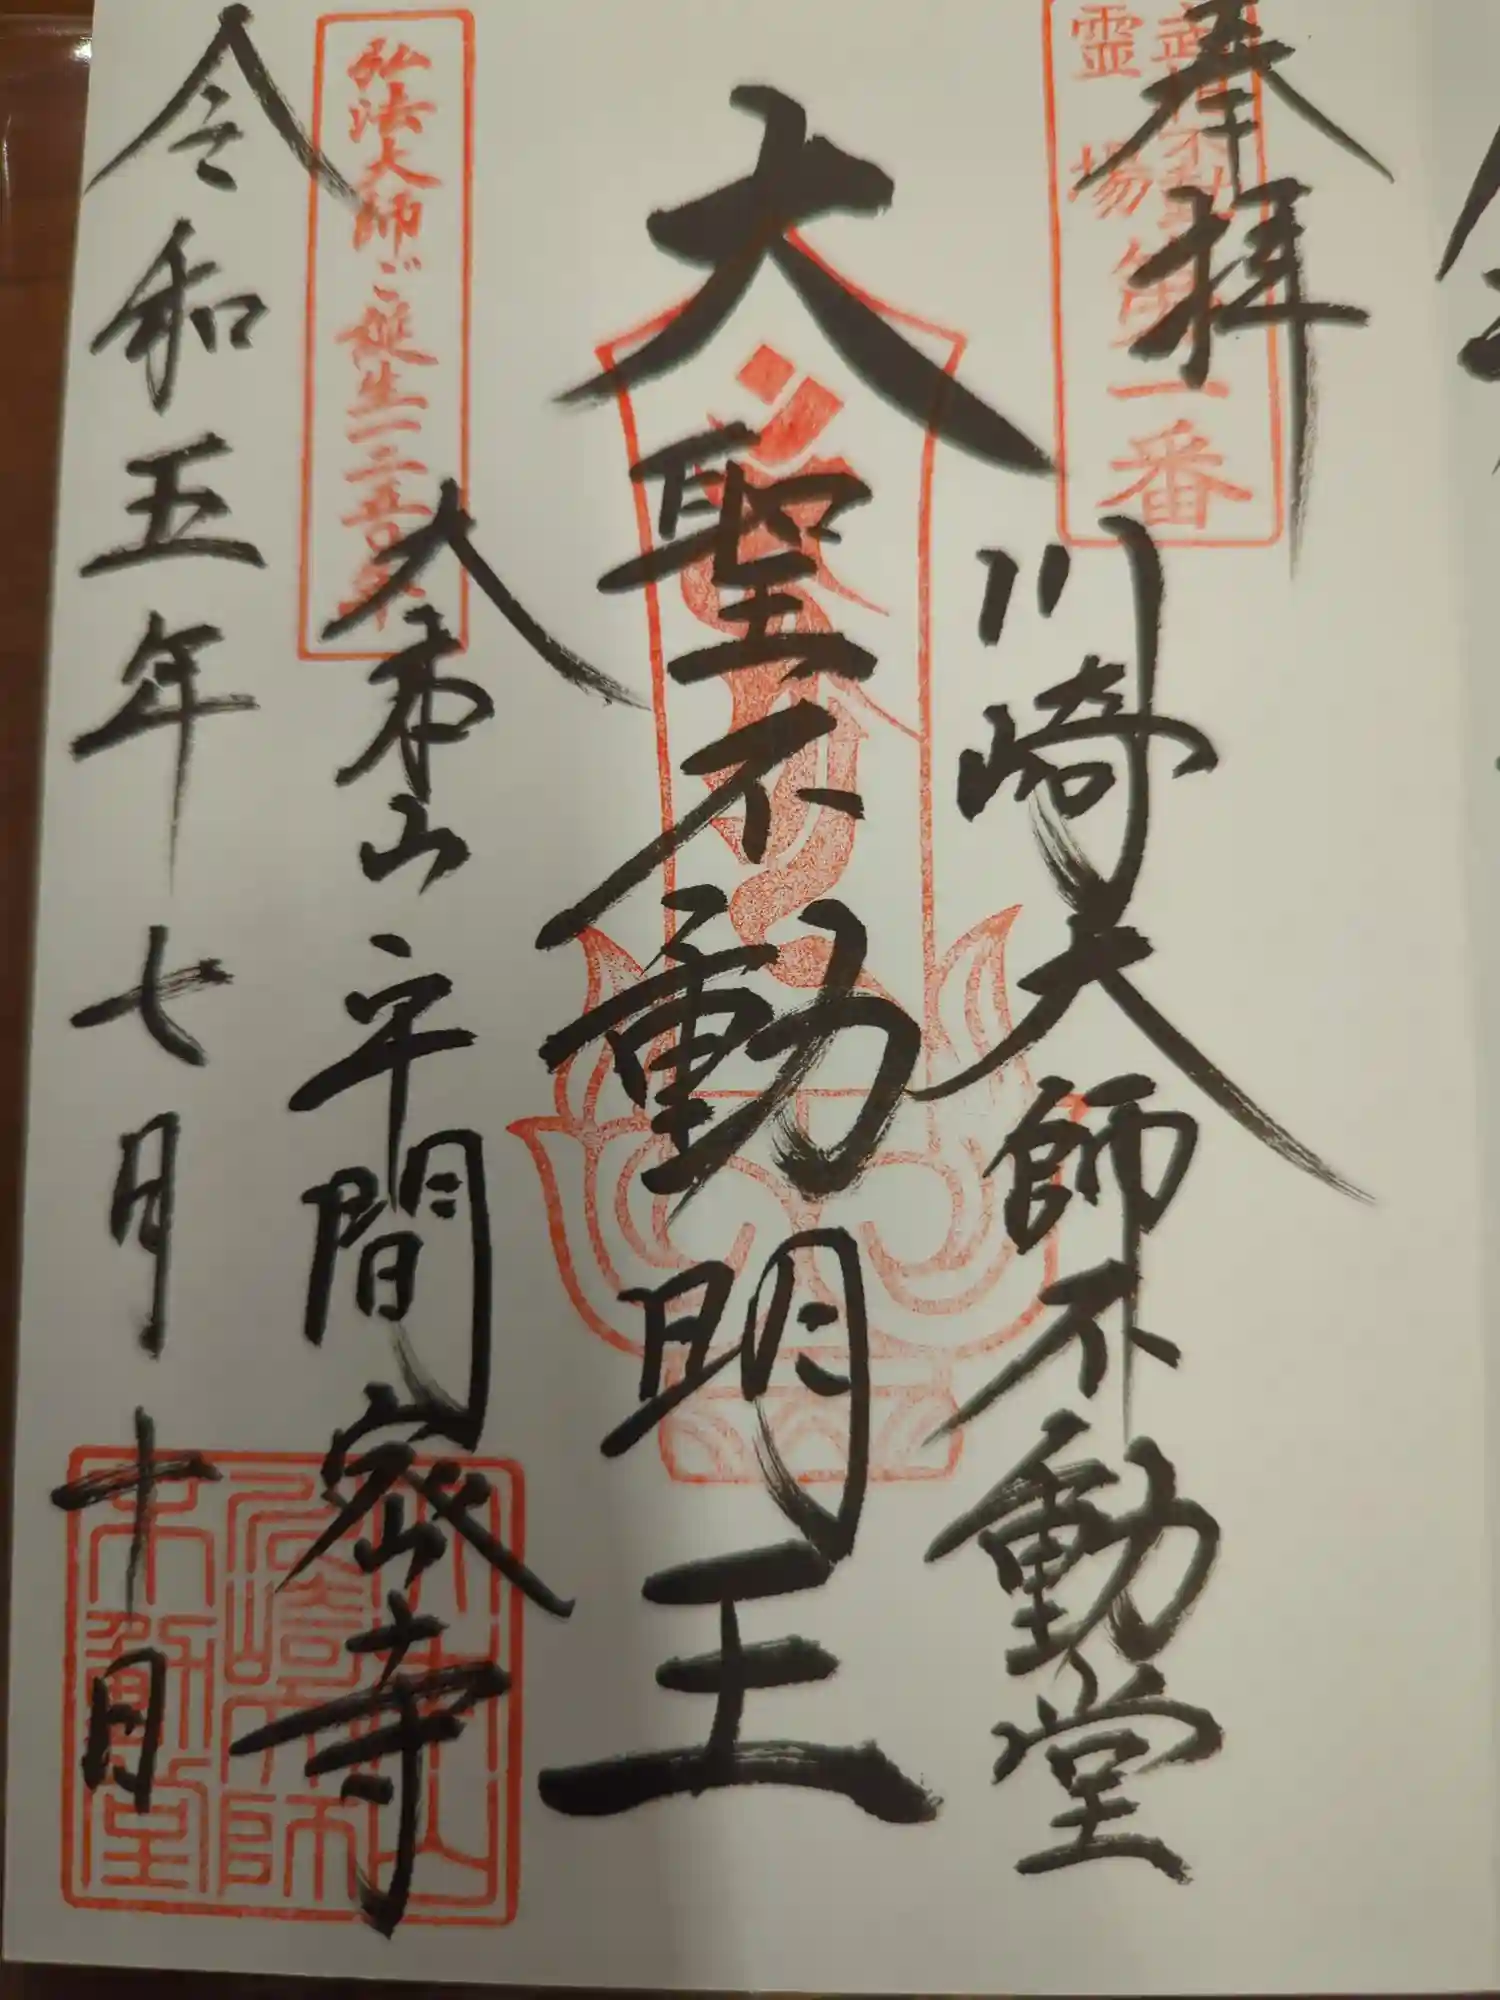 奉拝
霊場
第一番
川崎大師不動堂
大聖不動明王
弘法大師ご誕生一二五〇年
大本山平間密寺
令和五年七月十日
大本山
川崎大師
不動堂